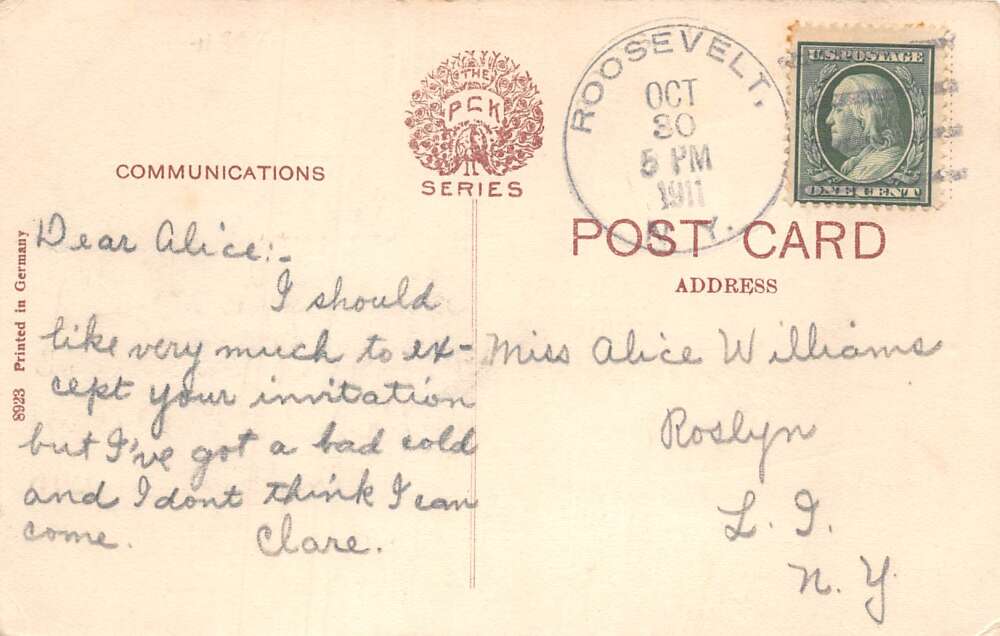 THE
PCK
SERIES
COMMUNICATIONS
8923 Printed in Germany
Dear Alice:-
I should
like very much to ex-
cept your invitation
but I've got a bad cold
and I dont think I can
come. Clare.
ROOSEVELT,
OCT
30
5 PM
1911
N. Y.
U.S. POSTAGE
ONE CENT
POST CARD
ADDRESS
Miss Alice Williams
Roslyn
L. I.
N. Y.